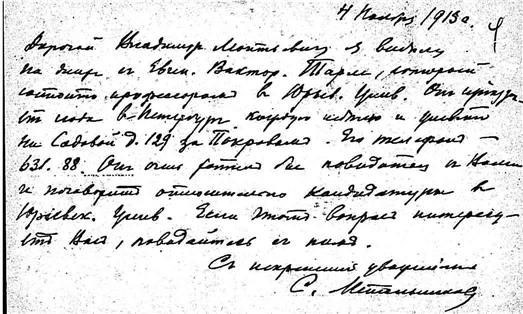 4 Ноября 1913 г.
Дорогой Владимир я видел
на днях с Евген. Виктор. Тарле, который
состоит профессором в Юрьев. Унив. Он
в Петербург каждую неделю и
на Садовой д. 129 за Покровом. Его телефон –
631.88. Он очень хотел бы повидаться с Вами
и поговорить относительно кандидатуры в
Юрьевск. Унив. Если этот вопрос интересу-
ет Вас, повидайтесь с ним.
Съ искренним уважением
С. Метальников